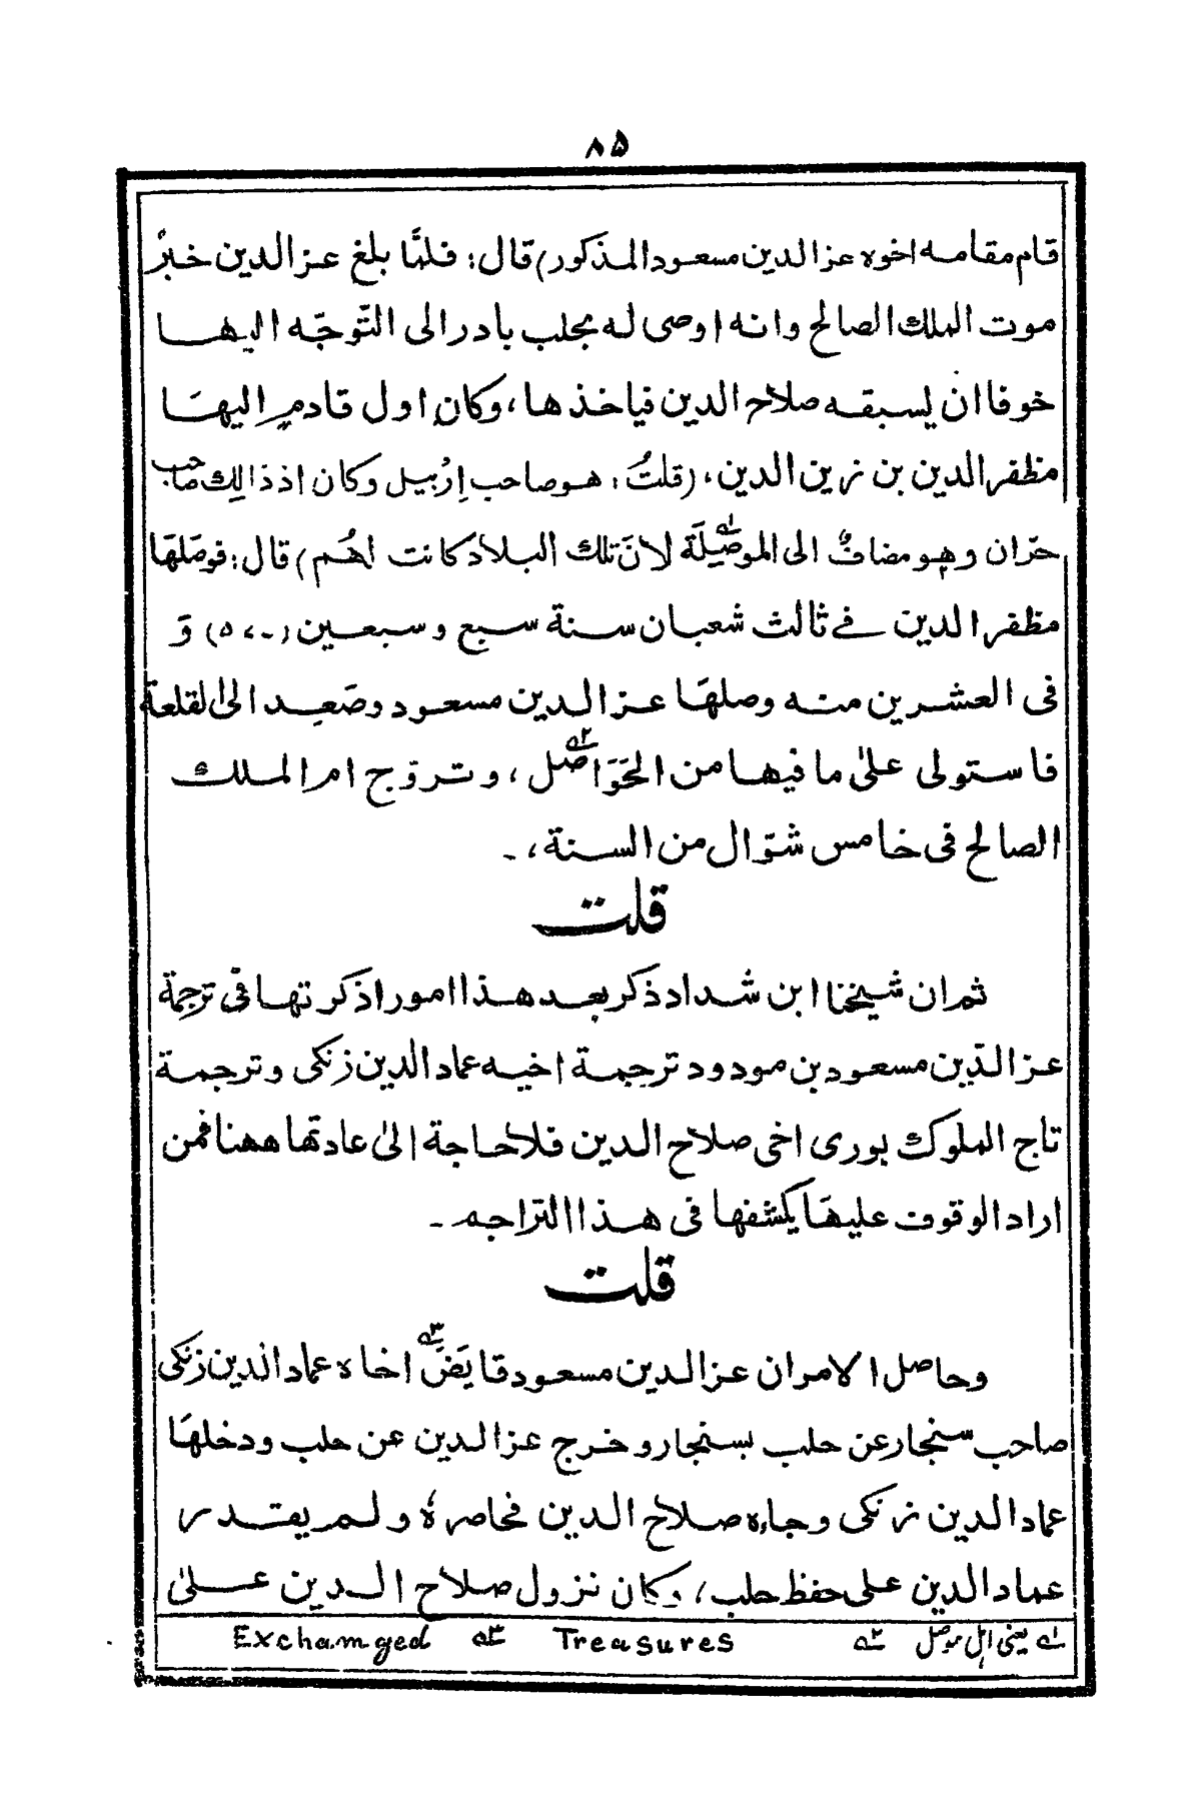 ۸۵
قام مقامه اخوه عز الدين مسعود المذكور) قال: فلمّا بلغ عز الدين خبرُ
موت الملك الصالح وانه اوصى له بحلب بادر الى التّوجّه اليها
خوفا ان يسبقه صلاح الدين فياخذها، وكان اول قادمٍ اليهَا
مظفر الدين بن زين الدين، (قلتُ: هو صاحب اِرْبيل وكان اذ ذالك صاحب
حرّان وهو مضافٌ الى الموصِيلَة لانّ تلك البلاد كانت لهُم) قال: فوصَلهَا
مظفر الدين في ثالث شعبان سنة سبع وسبعين (۵۷۰) وَ
فى العشرين منه وصلهَا عز الدين مسعود وصَعِد الىٰ القلعة
فاستولى علىٰ ما فيها من الحَوَاصْل، وتزوّج ام الملك
الصالح فى خامس شوّال من السنة، ـ
قلت
ثم ان شيخنا ابن شداد ذكر بعد هذا امورا ذكرتها فى ترجمة
عز الدّين مسعود بن مودود ترجمة اخيه عماد الدين زنكى وترجمة
تاج الملوك بورى اخى صلاح الدين فلا حاجة الىٰ عادتها ههنا فمن
اراد الوقوف عليهَا يكشفها فى هذا التراجم ـ
قلت
وحاصل الامر ان عز الدين مسعود قايَضَ اخاه عماد الدين زنكى
صاحب سنجار عن حلب بسنجار وخرج عز الدين عن حلب ودخلهَا
عماد الدين زنكى وجاءه صلاح الدين فحاصرهُ ولم يقتدر
عماد الدين على حفظ حلب، وكان نزول صلاح الدين علىٰ
له يعنى اهل موصل ٢ه Treasures ٣ه Exchamged